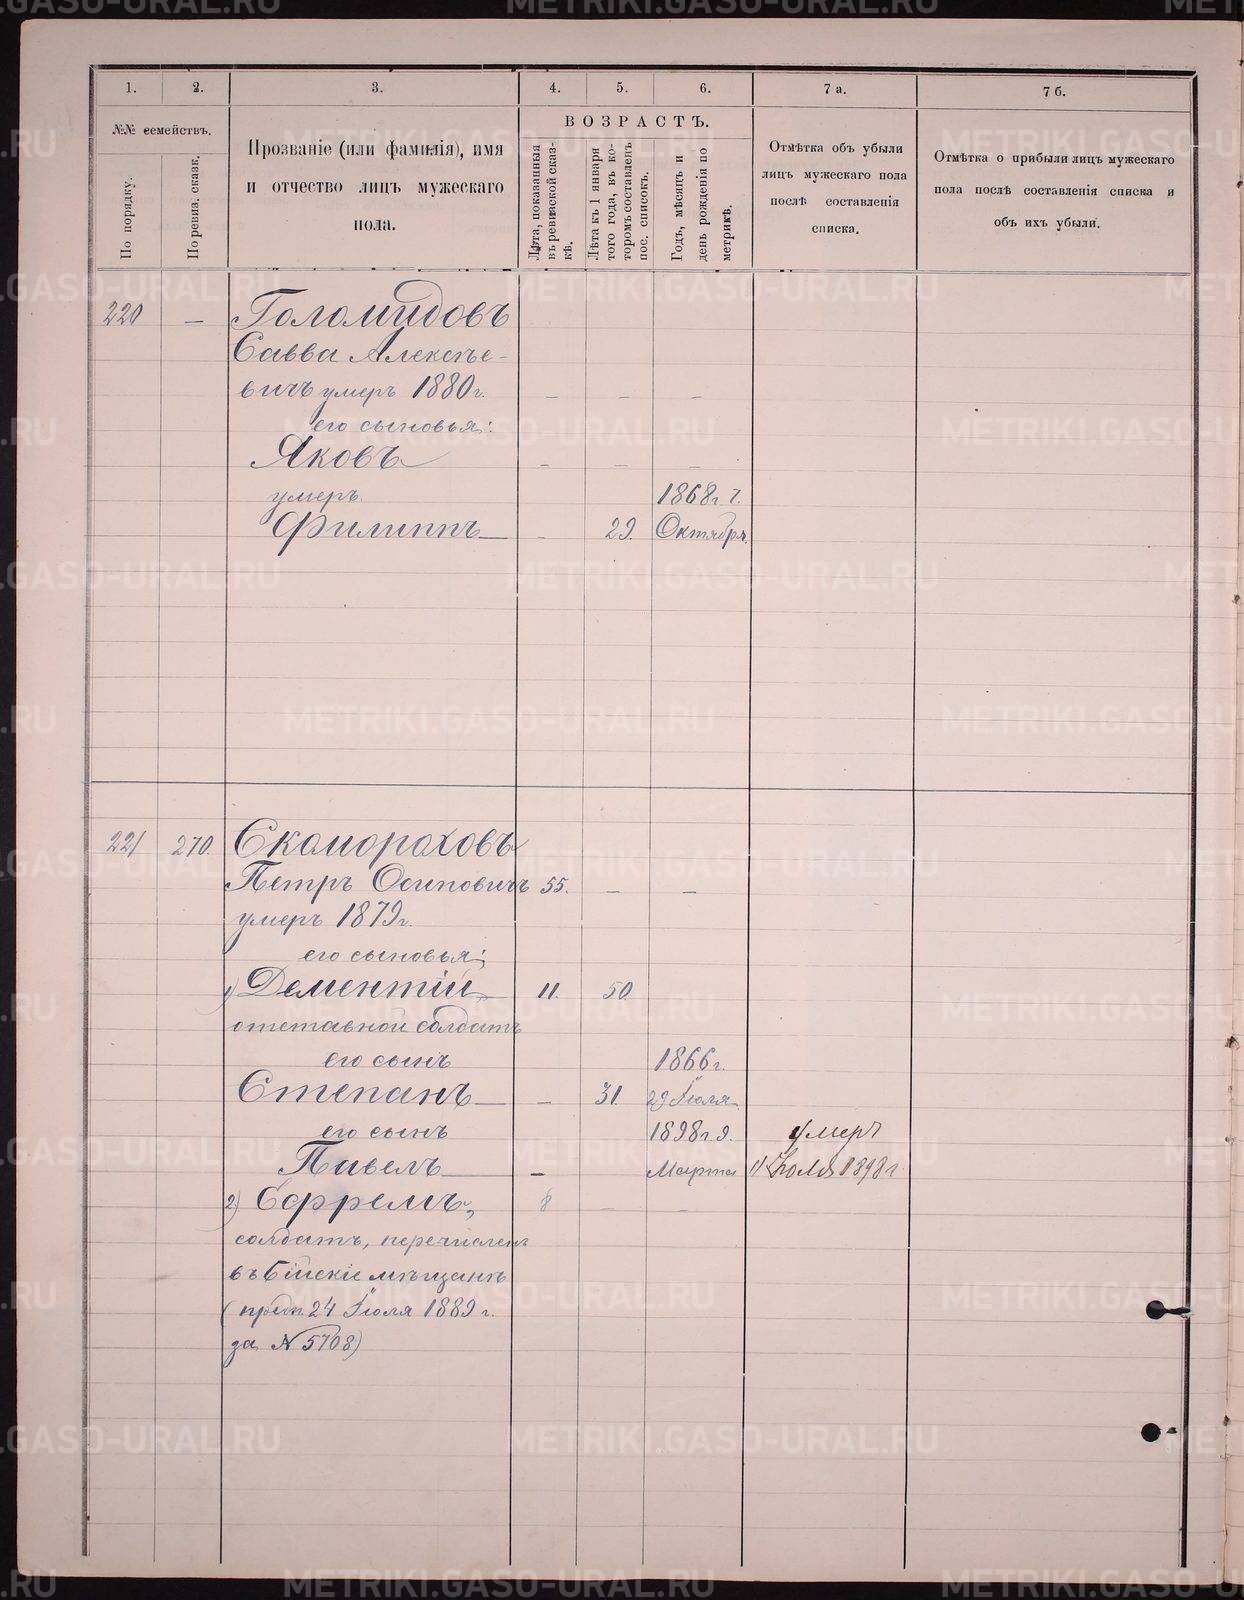 1. 2. 3. 4. 5. 6. 7 а. 7 б.
№№ семействъ.
По порядку.
По ревиз. сказк.
Прозваніе (или фамилія), имя
и отчество лицъ мужескаго
пола.
ВОЗРАСТЪ.
Лѣта, показанныя
въ ревизской сказ-
кѣ.
Лѣта къ 1 января
того года, въ ко-
торомъ составленъ
пос. списокъ.
Годъ, мѣсяцъ и
день рожденія по
метрикѣ.
Отмѣтка объ убыли
лицъ мужескаго пола
послѣ составленія
списка.
Отмѣтка о прибыли лицъ мужескаго
пола послѣ составленія списка и
объ ихъ убыли.
220 — Голомидовъ
Савва Алексѣе-
вичъ умеръ 1880 г. — — —
его сыновья:
Яковъ — — —
умеръ. 1868 г. 7.
Филиппъ — - 29. Октября.
221 270. Скомороховъ
Петръ Осиповичъ 55. — —
умеръ 1879 г.
его сыновья:
1) Дементій 11. 50.
отставной солдатъ
его сынъ 1866 г.
Степанъ — — 31. 29 Іюля
его сынъ 1898 г. 9. умеръ
Павелъ — — Марта 11 Іюля 1898 г.
2) Ефремъ, 8 — —
солдатъ, перечисленъ
въ Бійскіе мѣщане
(предп. 24 Іюля 1889 г.
за № 5708)
METRIKI.GASO-URAL.RU